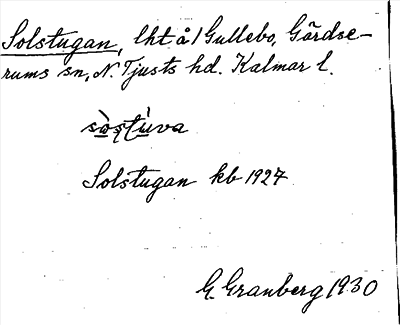 Solstugan, lht å 1 Gullebo, Gärdse-
rums sn, N. Tjusts hd. Kalmar l.
sòstùva
Solstugan kb 1927
G. Granberg 1930